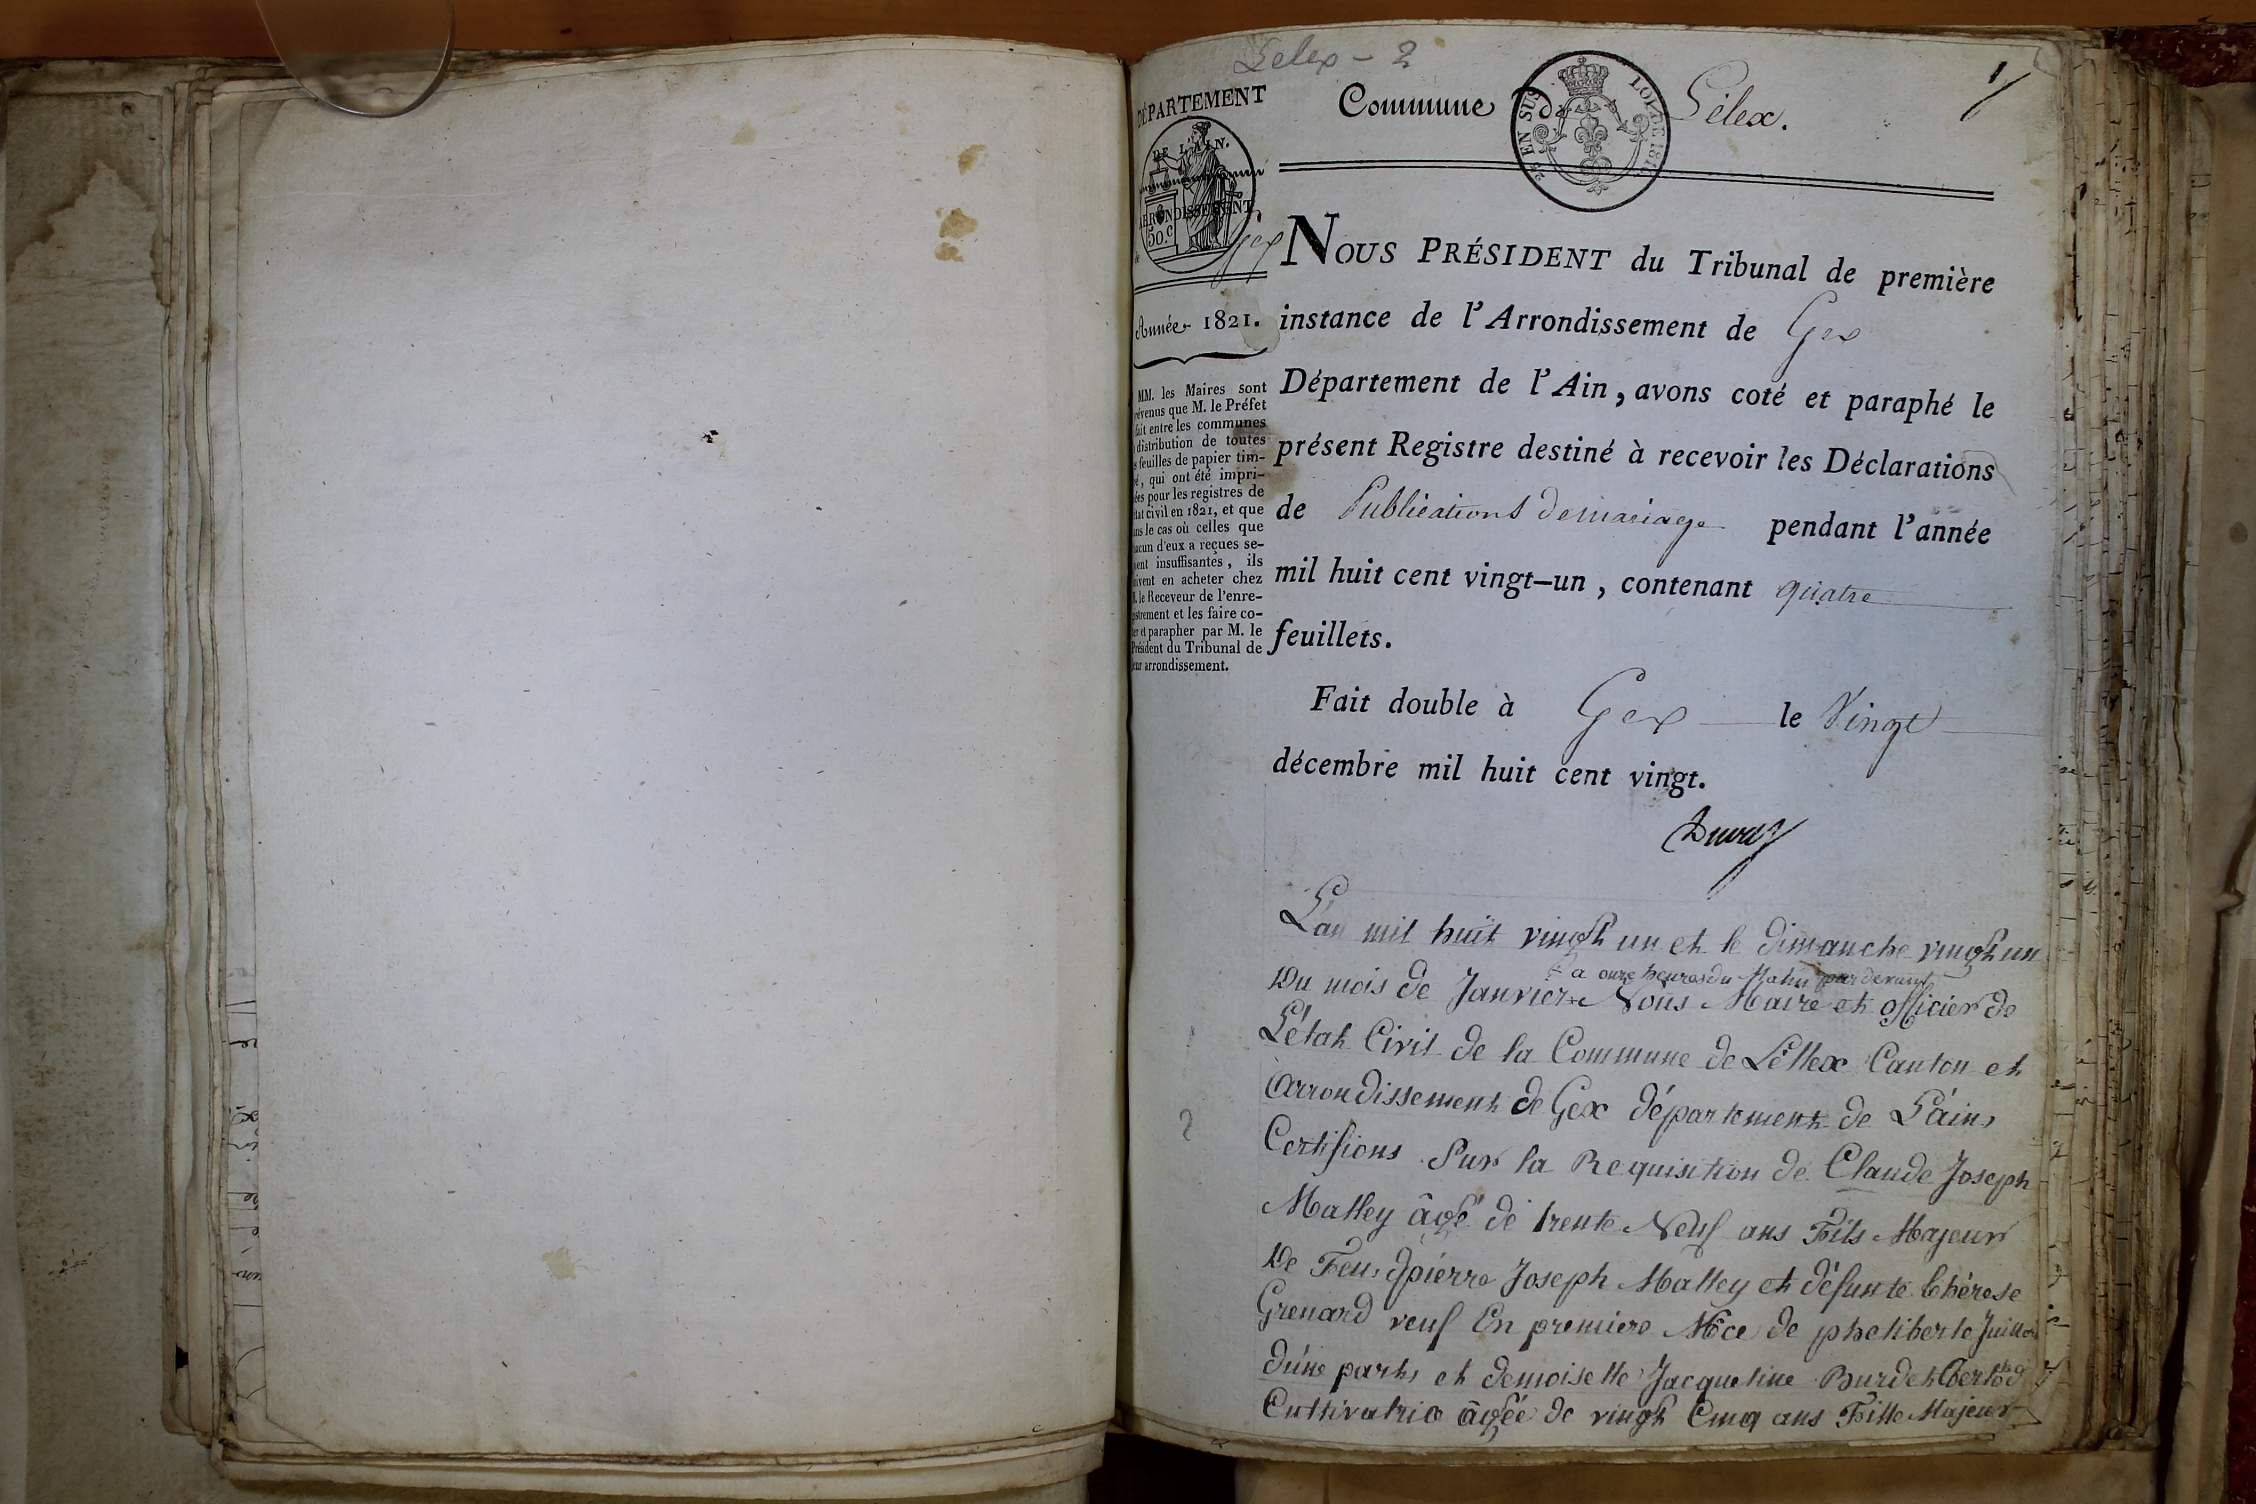 Lelex - 2
1
DÉPARTEMENT
DE L'AIN.
ARRONDISSEMENT
50.C
de Gex
Année 1821.
MM. les Maires sont
révenus que M. le Préfet
fait entre les communes
distribution de toutes
s feuilles de papier tim-
é, qui ont été impri-
ées pour les registres de
tat civil en 1821, et que
ans le cas où celles que
acun d'eux a reçues se-
ient insuffisantes, ils
ivent en acheter chez
M. le Receveur de l'enre-
gistrement et les faire co-
ter et parapher par M. le
Président du Tribunal de
eur arrondissement.
Commune de Lélex.
EN SUS LOI DE 1816
NOUS PRÉSIDENT du Tribunal de première
instance de l'Arrondissement de Gex
Département de l'Ain, avons coté et paraphé le
présent Registre destiné à recevoir les Déclarations
de Publications de mariage pendant l'année
mil huit cent vingt-un, contenant quatre
feuillets.
Fait double à Gex le Vingt
décembre mil huit cent vingt.
L'an mil huit vingt un et le dimanche vingt un
a onze heures du Matin par devant
Du mois de Janvier Nous Maire et officier de
L'état Civil de la Commune de Léllex Canton et
Arrondissement de Gex département de L'ain,
Certifions Sur la Requisition de Claude Joseph
Malley âgé de trente Neuf ans Fils Majeur
De Feu, pierre Joseph Malley et défunte thérese
Grenard veuf En premiere Nôce de pheliberte
2
d'une part, et demoiselle Jacqueline Burdet
Cultivatrice âgée de vingt Cinq ans Fille Majeur